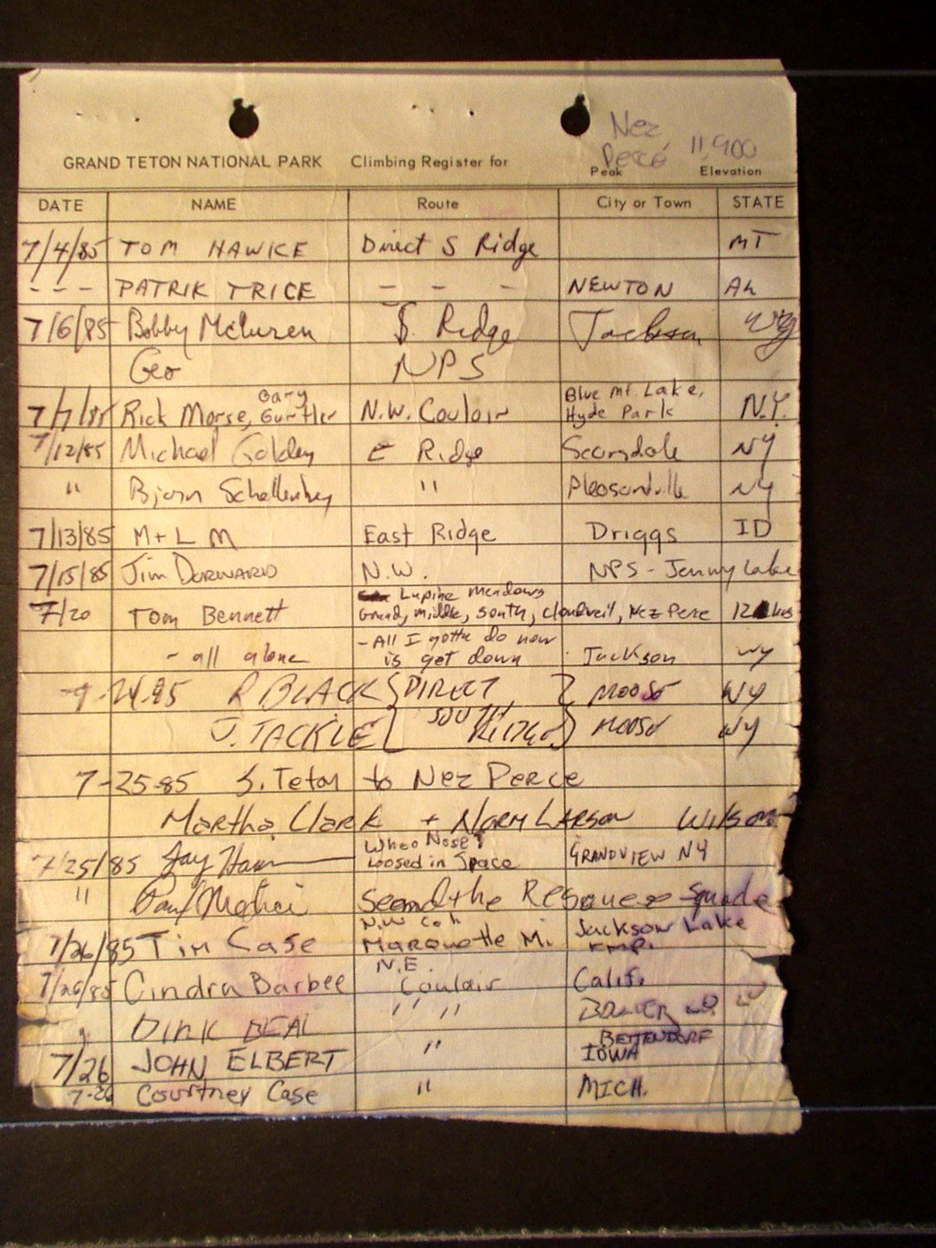 Nez
Percé 11,900
GRAND TETON NATIONAL PARK Climbing Register for
Peak Elevation
DATE NAME Route City or Town STATE
7/4/85 TOM HAWKE Direct S Ridge MT
- - - PATRIK TRICE - - - NEWTON AL
7/6/85 Bobby S. Ridge Jackson Wy
Geo NPS
7/7/85 Rick Morse, Gary Gunther N.W. Couloir Blue Mt. Lake, Hyde Park N.Y.
7/12/85 Michael Golden E Ridge Scarsdale NY
" Bjorn " Pleasantville NY
7/13/85 M + L M East Ridge Driggs ID
7/15/85 Jim DORWARD N.W. NPS - Jenny Lake
Lupine Meadows
7/20 Tom Bennett Grand, middle, south, cloudveil, Nez Perce 12 hrs
- All I gotta do now
- all alone is get down Jackson WY
24.85 R BLACK { DIRECT } MOOSE WY
J. TACKLE { SOUTH RIDGE } MOOSE WY
7-25-85 S. Teton to Nez Perce
Martha Clark + NORM LARSON Wilson
Whoo Nose?
7/25/85 Jay Loosed in Space GRANDVIEW NY
" Paul Send the Resque Squade
N.W. Jackson Lake
7/26/85 Tim Case Marquette Mi.
N.E.
7/26/85 Cindra Barbee Couloir Calif.
DINK BEAL " "
BETTENDORF
7/26 JOHN ELBERT " IOWA
7-26 Courtney Case " MICH.